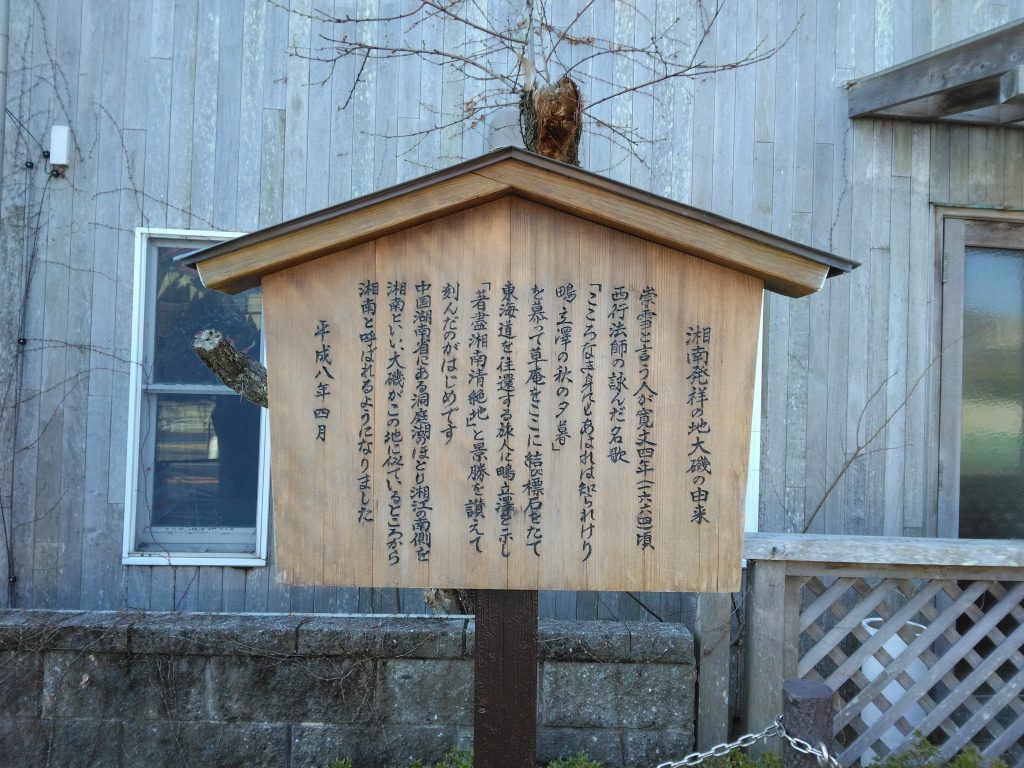 湘南発祥の地大磯の由来
崇雪と言う人が寛文四年(一六六四)頃
西行法師の詠んだ名歌
「こころなき身にもあはれは知られけり
鴫立澤の秋の夕暮」
を慕って草庵をここに結び標石をたて
東海道を往還する旅人に鴫立澤を示し
「著盡湘南清絶地」と景勝を讃えて
刻んだのがはじめです
中国湖南省にある洞庭湖のほとり湘江の南側を
湘南といい、大磯がこの地に似ているところから
湘南と呼ばれるようになりました
平成八年四月